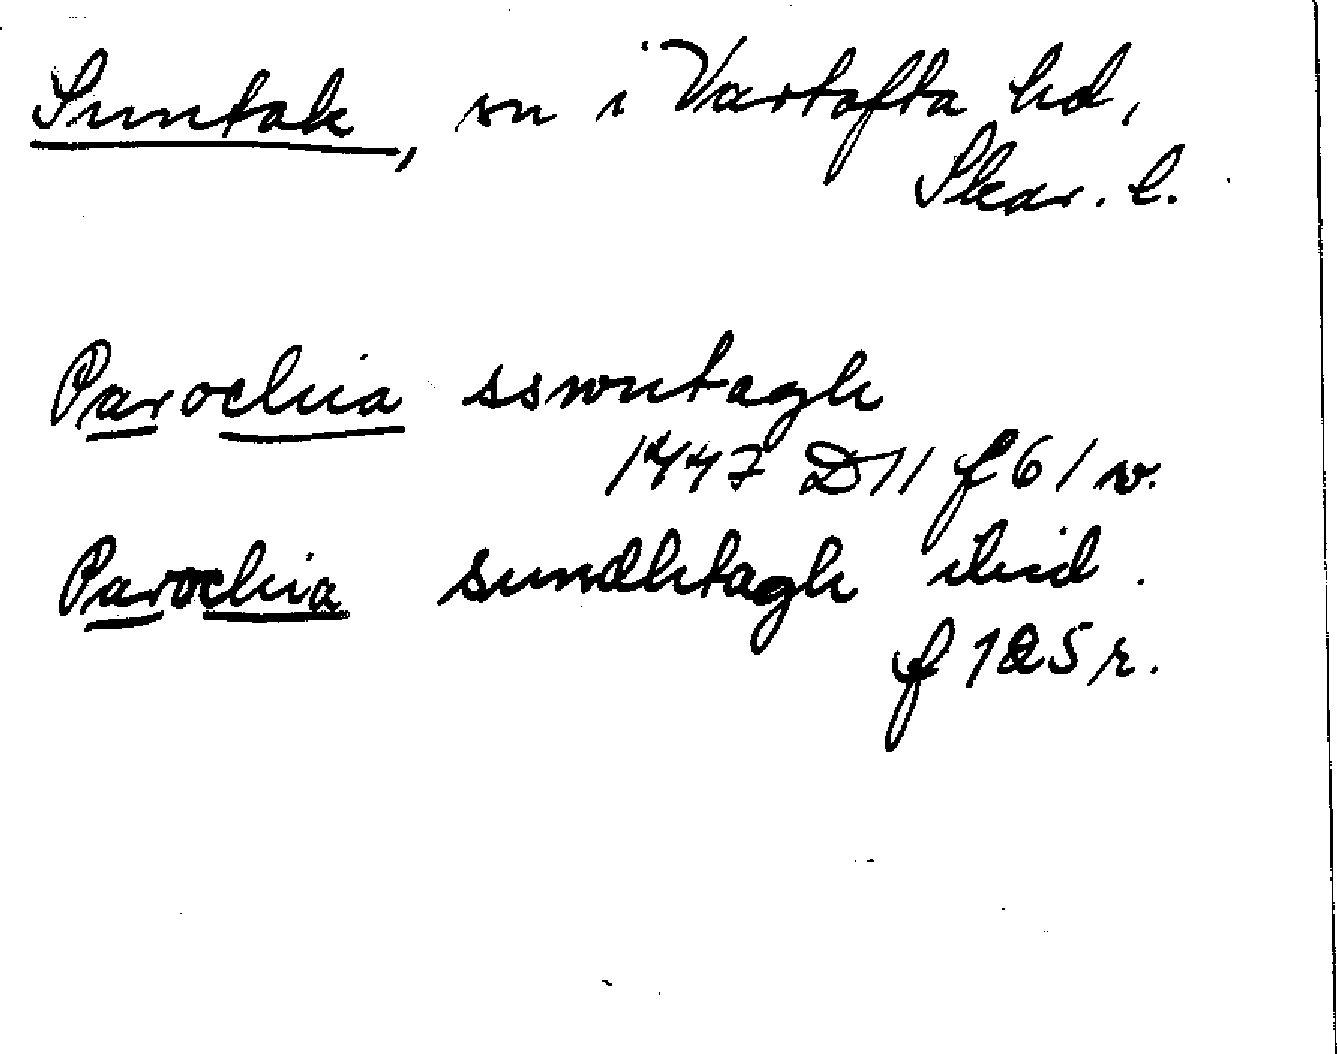 Suntak, sn i Vartofta hd,
Skar. l.
Parochia sswntagh
1447 D11 f 61 v.
Parochia sundhtagh ibid.
f 125 r.